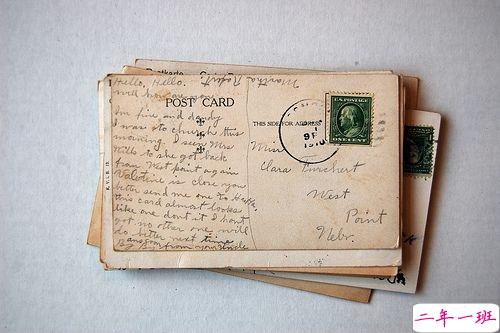 Hello, Hello.
well how are you
POST CARD
Im fine and dandy
I was to church this
morning. I seen Mrs
Hills to she got back
from West point again
Valentine is close you
better send me one to HaHa.
this card almost looks
like one dont it I hant
got no other one will
do better next time
By By from your
THIS SIDE FOR ADDRESS
U.S. POSTAGE
ONE CENT
Miss
Clara
West
Point
Nebr.
Postkarte
二年一班